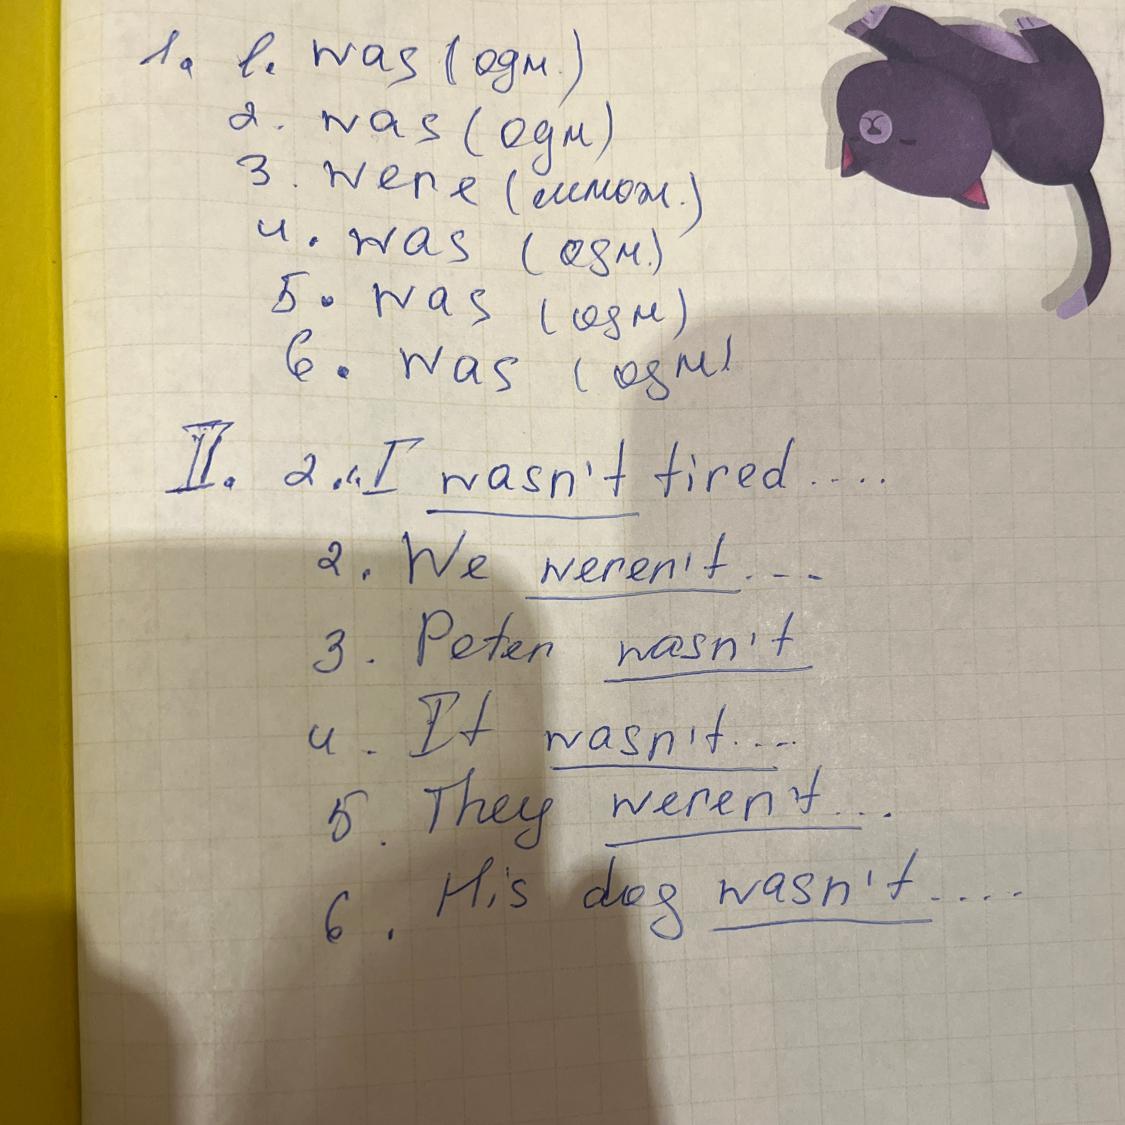 1. 1. was (одн.)
2. was (одн)
3. were (множ.)
4. was (одн.)
5. was (одн)
6. was (одн)
II. 2. I wasn't tired....
2. We weren't....
3. Peter wasn't
4. It wasn't....
5. They weren't...
6. His dog wasn't....